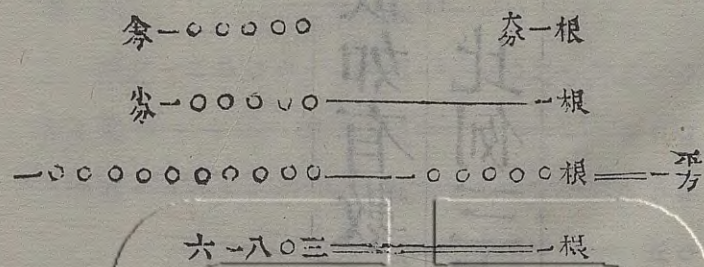 全分一〇〇〇〇〇 大分一根
小分一〇〇〇〇〇—一根
一〇〇〇〇〇〇〇〇〇〇—一〇〇〇〇〇根=一平方
六一八〇三=一根